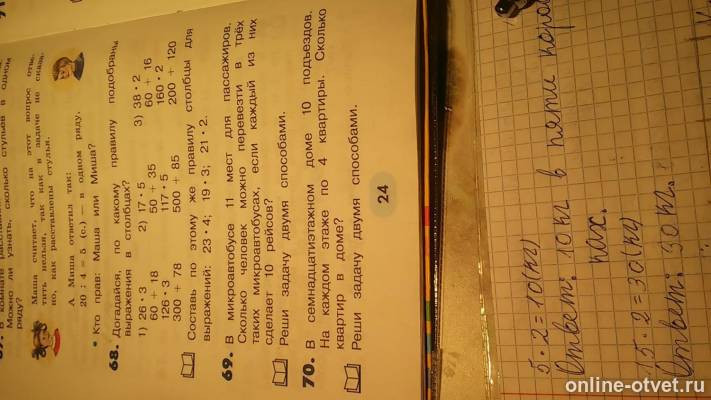 Можно ли узнать, сколько стульев в одном
ряду?
Маша считает, что на этот вопрос отве-
тить нельзя, так как в задаче не сказа-
но, как расставлены стулья.
А Миша ответил так:
20 : 4 = 5 (с.) — в одном ряду.
• Кто прав: Маша или Миша?
68. Догадайся, по какому правилу подобраны
выражения в столбцах?
1) 26 · 3 2) 17 · 5 3) 38 · 2
60 + 18 50 + 35 60 + 16
126 · 3 117 · 5 160 · 2
300 + 78 500 + 85 200 + 120
Составь по этому же правилу столбцы для
выражений: 23 · 4; 19 · 3; 21 · 2.
69. В микроавтобусе 11 мест для пассажиров.
Сколько человек можно перевезти в трёх
таких микроавтобусах, если каждый из них
сделает 10 рейсов?
Реши задачу двумя способами.
70. В семнадцатиэтажном доме 10 подъездов.
На каждом этаже по 4 квартиры. Сколько
квартир в доме?
Реши задачу двумя способами.
24
5 · 2 = 10 (кг)
Ответ: 10 кг в пяти
15 · 2 = 30 (кг)
Ответ: 30 кг.
online-otvet.ru